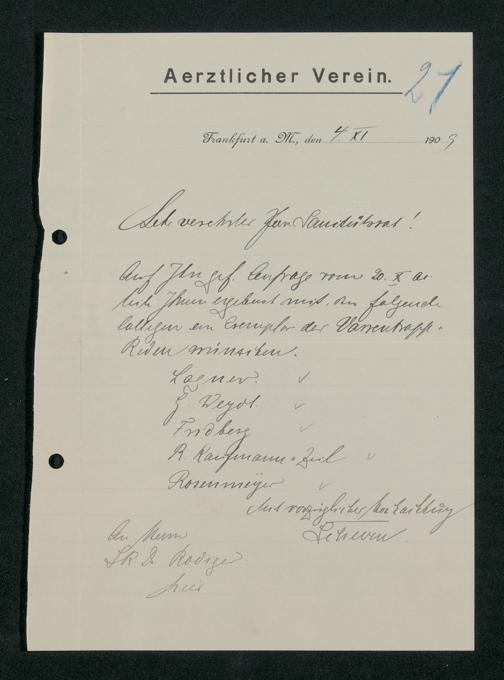 Aerztlicher Verein.
27
Frankfurt a. M., den 4. XI 1909
Sehr verehrter Herr Sanitätsrat!
Auf Ihr gef. Anfrage vom 20. X
teile Ihnen ergebenst mit, dass folgende
Collegen ein Exemplar der Varrentrapp-
Reden wünschen.
E. Weydt
Fridberg
R. Kaufmann - Zeil
Rosenmeyer
Mit vorzüglicher Hochachtung
An Herrn
SR Dr. Rödiger
hier